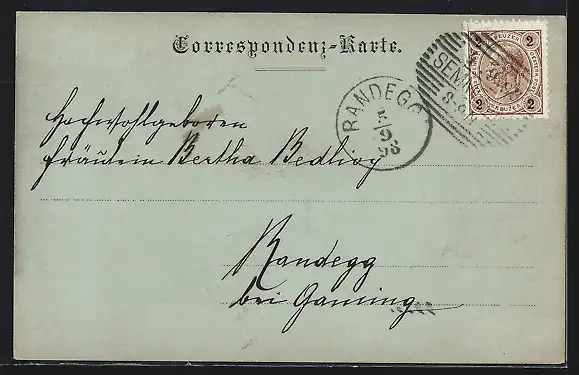 Correspondenz-Karte.
2 2
2 2
SEMM
RANDEGG
5
9
98
Hochwohlgeboren
Fräulein Bertha Bedlivy
Randegg
bei Gaming